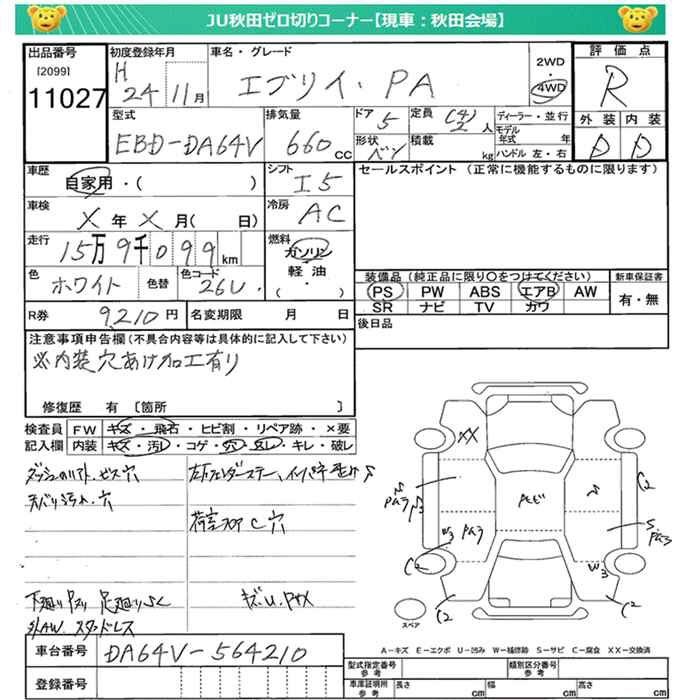 JU秋田ゼロ切りコーナー【現車：秋田会場】
出品番号
[2099]
11027
初度登録年月
H 24 11月
車名・グレード
エブリイ・PA
2WD
・
4WD
評価点
R
外装 内装
D D
型式
EBD-DA64V
排気量
660 cc
ドア 5
定員 (4) 2 人
形状 バン
積載 kg
ディーラー・並行
モデル年式 年
ハンドル 左・右
車歴
自家用・( )
シフト
I5
車検
X 年 X 月( 日)
冷房
AC
走行
15万9千099 km
燃料
ガソリン
・
軽油
・
( )
色
ホワイト
色替
色コード
26U
R券 9,210 円
名変期限 月 日
セールスポイント (正常に機能するものに限ります)
装備品 (純正品に限り○をつけてください)
PS PW ABS エアB AW
SR ナビ TV カワ
新車保証書
有・無
後日品
注意事項申告欄(不具合内容等は具体的に記入して下さい)
※内装穴あけ加工有り
修復歴 有 [箇所 ]
検査員
記入欄
FW キズ・飛石・ヒビ割・リペア跡・×要
内装 キズ・汚レ・コゲ・穴・スレ・キレ・破レ
ビス穴
天バリ汚れ、穴
荷室フロア C 穴
下廻り
スタッドレス
XX
W3
C2
C2
C2
C2
スペア
A-キズ E-エクボ U-凹み W-補修跡 S-サビ C-腐食 XX-交換済
車台番号 DA64V-564210
登録番号
型式指定番号
参考
類別区分番号
参考
車庫証明用
参考
長さ cm 幅 cm 高さ cm